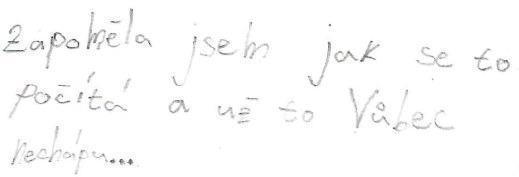 Zapoměla jsem jak se to
počítá a už to Vůbec
nechápu...